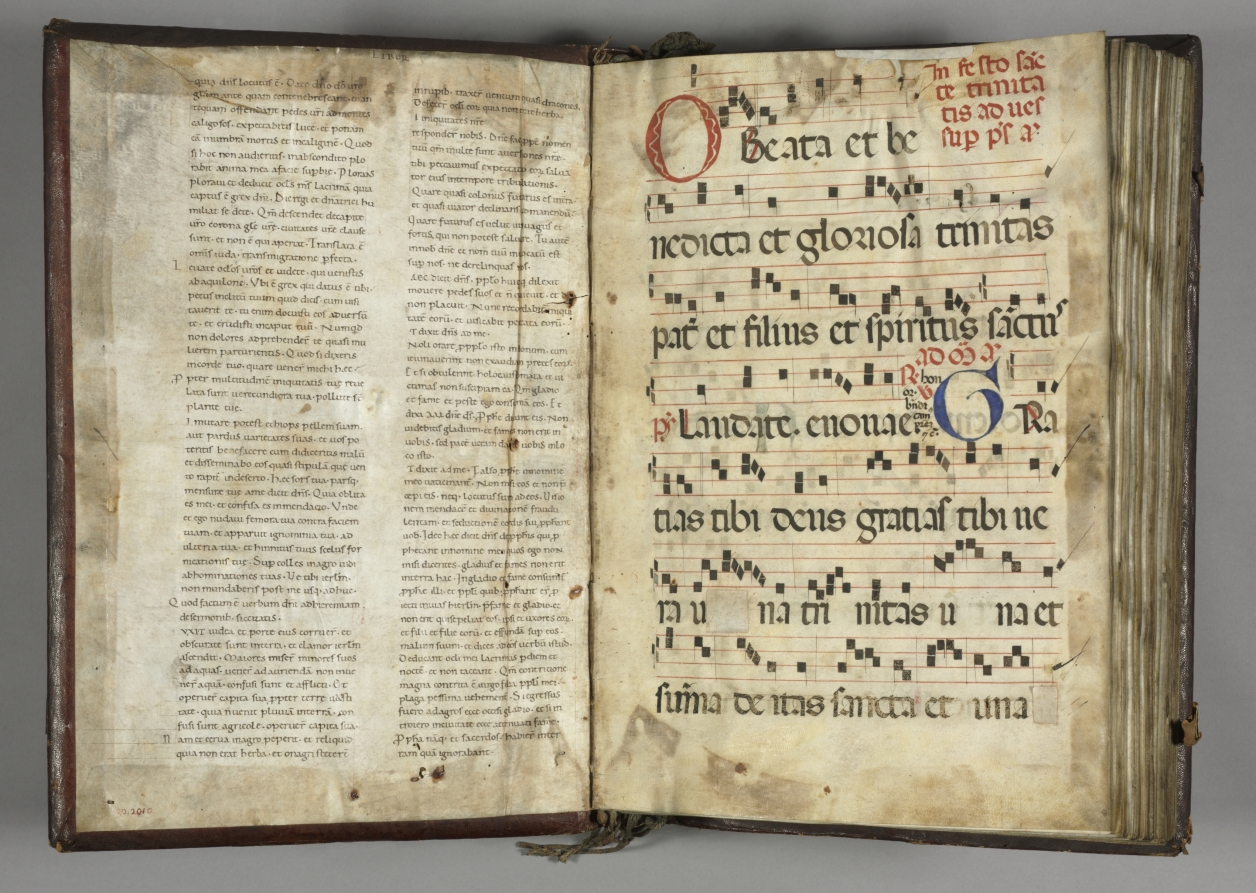 LIBOR
quia dñs locutus ē. Date dño dõ urõ
gl̄iam ante quam contenebrescant. et an
tequam offendant pedes uri ad montes
caligosos. expectabitis lucē. et ponam
eā in umbrā mortis et in caliginē. Quod
si hoc non audieritis. in abscondito plo
rabit anima mea a facie supbie. Plorans
plorauit et deducit oclš mš lacrimā quia
captus ē grex dñi. Dic regi et dñatrici hu
miliatis sedete. Qm̄ descendet de capite
uro corona glē urē. ciuitates urē clause
sunt. et non ē qui aperiat. Translata ē
omīs iuda. transmigratione pfecta.
Leuate oclos uros et uidete. qui uenistis
ab aquilone. Vbi ē grex qui datus ē tibi.
pecus inclitū tuum quid dices cum uisi
tauerit te. tu enim docuisti eos aduersū
te. et erudisti in caput tuū. Numqd
non dolores adprehendent te quasi mu
lierem parturientē. Quod si dixeris
in corde tuo. quare uener̄ michi hec.
Ppter multitudinē iniquitatis tuę reue
lata sunt uerecundiora tua. pollutę sī
plante tuę.
Si mutare potest ethiops pellem suam.
aut pardus uarietates suas. et uos po
teritis benefacere cum didiceritis malū
et disseminabo eos quasi stipulā quę uen
to rapit in deserto. Hęc sors tua. parsq
mensurę tuę a me dicit dñs. Quia oblita
es mei. et confisa es in mendacio. Vnde
et ego nudaui femora tua contra faciem
tuam. et apparuit ignominia tua. ad
ulteria tua. et hinnitus tuus scelus for
nicationis tuę. Sup colles in agro uidi
abhominationes tuas. Ve tibi ierlm̄.
non mundaberis post me usq adhuc.
Quod factum ē uerbum dñi ad ieremiam.
de sermonib. siccitatis.
LVXIT iudea et portę eius corruer̄. et
obscuratę sunt in terra. et clamor ierlm̄
ascendit. Maiores miser̄ minores suos
ad aquas. uener̄ ad auriendā. non inue
ner̄ aquā. confusi sunt et afflicti. Et
operuer̄ capita sua ppter terrę uasti
tatē. quia n̄ uenit pluuia in terrā. con
fusi sunt agricolę. operuer̄ capita sua.
Nam et cerua in agro peperit. et reliquid
quia non erat herba. et onagri steter̄
in rupib. traxer̄ uentum quasi dracones.
Defecer̄ ocli eor̄ quia non erat herba.
Si iniquitates nr̄e
responderint nobis. Dñe fac ppt̄ nomen
tuū qm̄ multę sunt auersiones nr̄ę.
tibi peccauimus expectatio isrl̄. salua
tor eius in tempore tribulationis.
Quare quasi colonus futurus es in terra
et quasi uiator declinans ad manendū.
Quare futurus es uelut uir uagus et
fortis qui non potest saluare. Tu autē
in nob dñe et nom̄ tuū inuocatū est
sup nos. ne derelinquas nos.
HAEC dicit dñs. pplo huic q dilexit
mouere pedes suos et n̄ quieuit. et dño
non placuit. Nunc recordabit iniqui
tatē eorū. et uisitabit peccata eorū.
Et dixit dñs ad me.
Noli orare p pplo isto in bonum. cum
ieiunauerint non exaudiam preces eor̄.
Et si obtulerint holocautomata et ui
ctimas non suscipiam ea. Qm̄ gladio
et fame et peste ego consumā eos. Et
dixi AAA dñe dš. Pphę dicunt eis. Non
uidebitis gladium. et fames non erit in
uobis. sed pacē ueram dabit uobis in lo
co isto.
Et dixit ad me. Falso pphę in nomine
meo uaticinant̄. Non misi eos et non p
cepi eis. neq. locutus sum ad eos. Visio
nem mendacē et diuinationē fraudu
lentam. et seductionē cordis sui pphant
uob. Ideo hęc dicit dñs de pphis qui p
phetant in nomine meo quos ego non
misi dicentes. gladius et fames non erit
in terra hac. In gladio et fame consumet̄
pphę illi. et ppli quib. pphant er̄ p
iecti in uiis hierlm̄ p fame et gladio. et
non erit qui sepeliat eos. ipsi et uxores eor̄
et filii et filię eorū. et effundā sup eos
malum suum. et dices ad eos uerbū istud.
Deducant ocli mei lacrimas p diem et
noctē. et non taceant. Qm̄ contritione
magna contrita ē uirgo filia ppli mei.
plaga pessima uehementer. Si egressus
fuero ad agros ecce occisi gladio. et si in
troiero in ciuitatē ecce attenuati fame.
Ppha naq. et sacerdos habier̄ in ter
ram quā ignorabant.
70.2010
In festo sāc
te trinita
tis ad ues
sup ps añ
O Beata et be
nedicta et gloriosa trinitas
pat̄ et filius et spiritus sāctus
ps Laudate. euouae ad m̄ añ
R hon
or. V
bndi
cam
GRa
tias tibi deus gratias tibi ue
ra u na tri nitas u na et
sum̄a de itas sancta et una